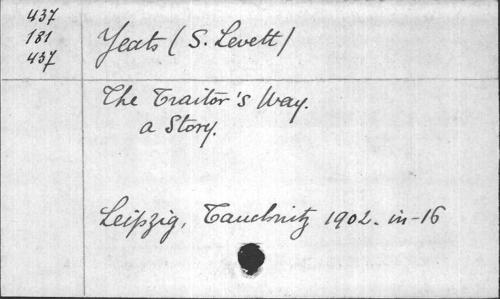 437
181
437
Yeats (S. Levett)
The Traitor's Way.
a Story.
Leipzig, Tauchnitz 1902. in-16